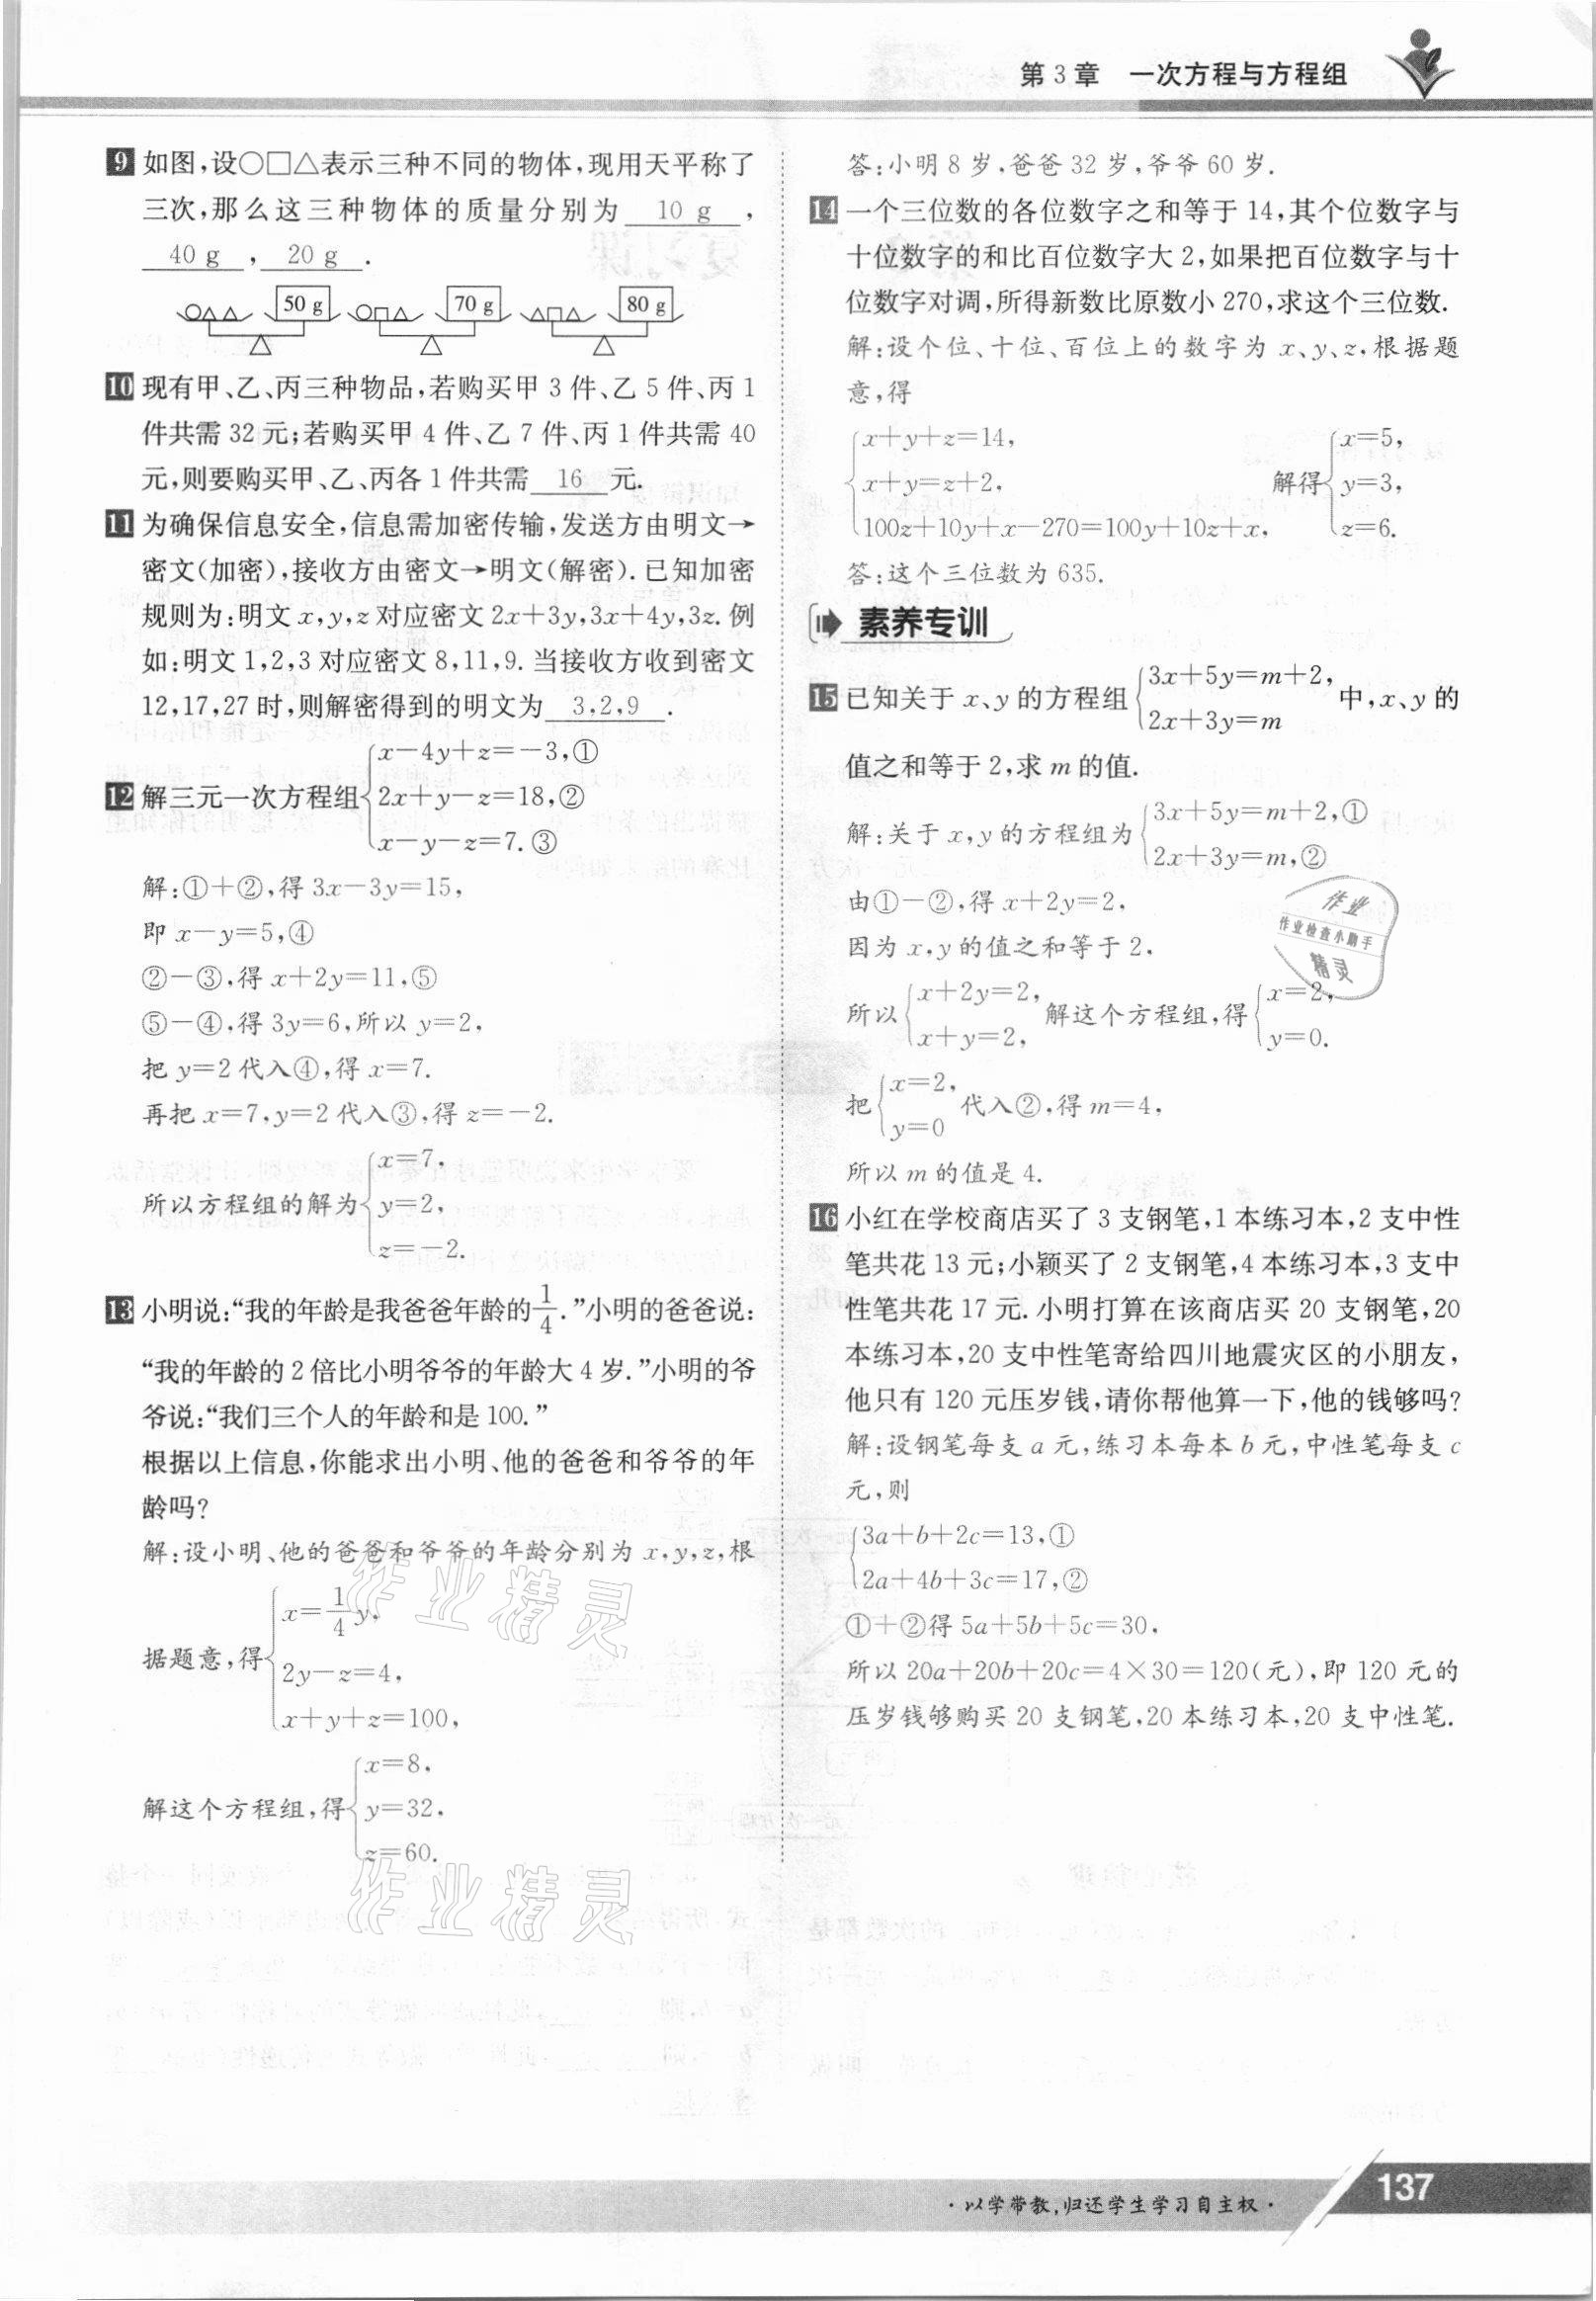 第3章 一次方程与方程组
9 如图,设○□△表示三种不同的物体,现用天平称了
三次,那么这三种物体的质量分别为 10 g ,
40 g , 20 g .
○△△ 50 g ○□△ 70 g △□△ 80 g
10 现有甲、乙、丙三种物品,若购买甲3件、乙5件、丙1
件共需32元;若购买甲4件、乙7件、丙1件共需40
元,则要购买甲、乙、丙各1件共需 16 元.
11 为确保信息安全,信息需加密传输,发送方由明文→
密文(加密),接收方由密文→明文(解密).已知加密
规则为:明文x,y,z对应密文2x+3y,3x+4y,3z.例
如:明文1,2,3对应密文8,11,9.当接收方收到密文
12,17,27时,则解密得到的明文为 3,2,9 .
x-4y+z=-3,①
12 解三元一次方程组{2x+y-z=18,②
x-y-z=7.③
解:①+②,得3x-3y=15,
即x-y=5,④
②-③,得x+2y=11,⑤
⑤-④,得3y=6,所以y=2,
把y=2代入④,得x=7.
再把x=7,y=2代入③,得z=-2.
x=7,
所以方程组的解为{y=2,
z=-2.
13 小明说:“我的年龄是我爸爸年龄的1/4.”小明的爸爸说:
“我的年龄的2倍比小明爷爷的年龄大4岁.”小明的爷
爷说:“我们三个人的年龄和是100.”
根据以上信息,你能求出小明、他的爸爸和爷爷的年
龄吗?
解:设小明、他的爸爸和爷爷的年龄分别为x,y,z,根
x=1/4y,
据题意,得{2y-z=4,
x+y+z=100,
x=8,
解这个方程组,得{y=32,
z=60.
答:小明8岁,爸爸32岁,爷爷60岁.
14 一个三位数的各位数字之和等于14,其个位数字与
十位数字的和比百位数字大2,如果把百位数字与十
位数字对调,所得新数比原数小270,求这个三位数.
解:设个位、十位、百位上的数字为x、y、z,根据题
意,得
x+y+z=14, x=5,
{x+y=z+2, 解得{y=3,
100z+10y+x-270=100y+10z+x, z=6.
答:这个三位数为635.
素养专训
3x+5y=m+2,
15 已知关于x、y的方程组{ 中,x、y的
2x+3y=m
值之和等于2,求m的值.
3x+5y=m+2,①
解:关于x,y的方程组为{
2x+3y=m,②
由①-②,得x+2y=2,
因为x,y的值之和等于2,
x+2y=2, x=2,
所以{ 解这个方程组,得{
x+y=2, y=0.
x=2,
把{ 代入②,得m=4,
y=0
所以m的值是4.
16 小红在学校商店买了3支钢笔,1本练习本,2支中性
笔共花13元;小颖买了2支钢笔,4本练习本,3支中
性笔共花17元.小明打算在该商店买20支钢笔,20
本练习本,20支中性笔寄给四川地震灾区的小朋友,
他只有120元压岁钱,请你帮他算一下,他的钱够吗?
解:设钢笔每支a元,练习本每本b元,中性笔每支c
元,则
{3a+b+2c=13,①
2a+4b+3c=17,②
①+②得5a+5b+5c=30,
所以20a+20b+20c=4×30=120(元),即120元的
压岁钱够购买20支钢笔,20本练习本,20支中性笔.
作业
作业检查小助手
精灵
作业精灵
作业精灵
·以学带教,归还学生学习自主权·
137